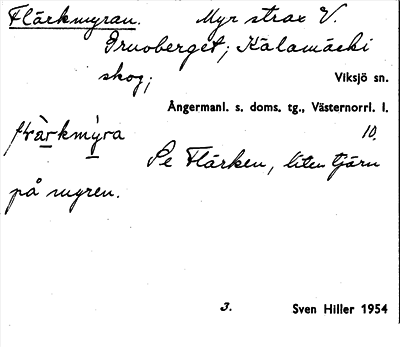 Flärkmyran. Myr strax V.
Oruoberget; Kälamäski
skog;
Viksjö sn.
Ångermanl. s. doms. tg., Västernorrl. l.
10.
Se Flärken, liten tjärn
på myren.
3. Sven Hiller 1954